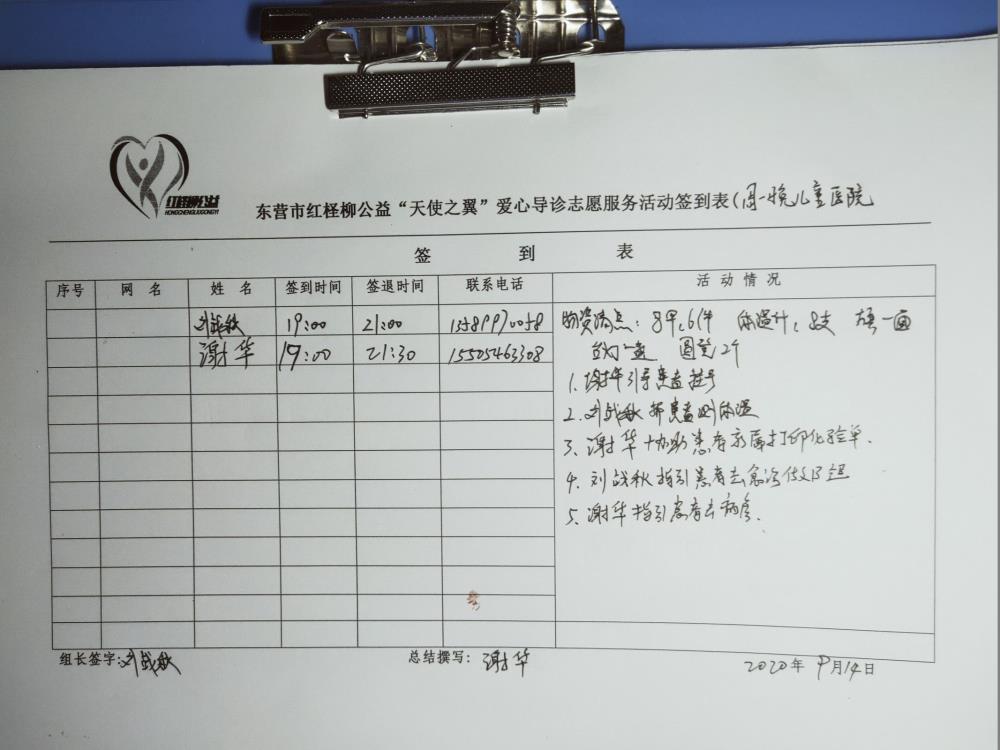 红柽柳公益
HONGCHENGLIUGONGYI
东营市红柽柳公益“天使之翼”爱心导诊志愿服务活动签到表(周一悦儿童医院
签 到 表
序号 网 名 姓 名 签到时间 签退时间 联系电话 活 动 情 况
刘战秋 19:00 21:00 15589970058 物资清点: 马甲,6件 体温计, 8支 旗一面
谢华 19:00 21:30 15505463308 一盒 圆凳2个
1. 谢华引导患者挂号
2. 刘战秋帮患者测体温
3. 谢华协助患者家属打印化验单.
4. 刘战秋指引患者去急诊
5. 谢华指引患者去病房.
组长签字:刘战秋 总结撰写: 谢华 2020年 9月14日